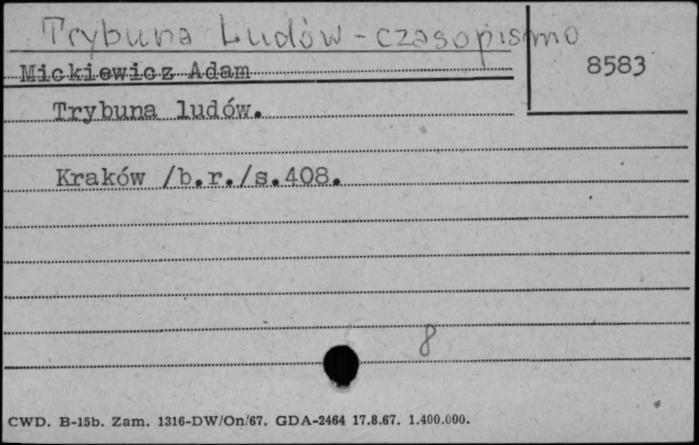 Trybuna Ludów - czasopismo
8583
Mickiewicz Adam
Trybuna ludów.
Kraków /b.r./s.408.
8
CWD. B-15b. Zam. 1316-DW/On/67. GDA-2464 17.8.67. 1.400.000.